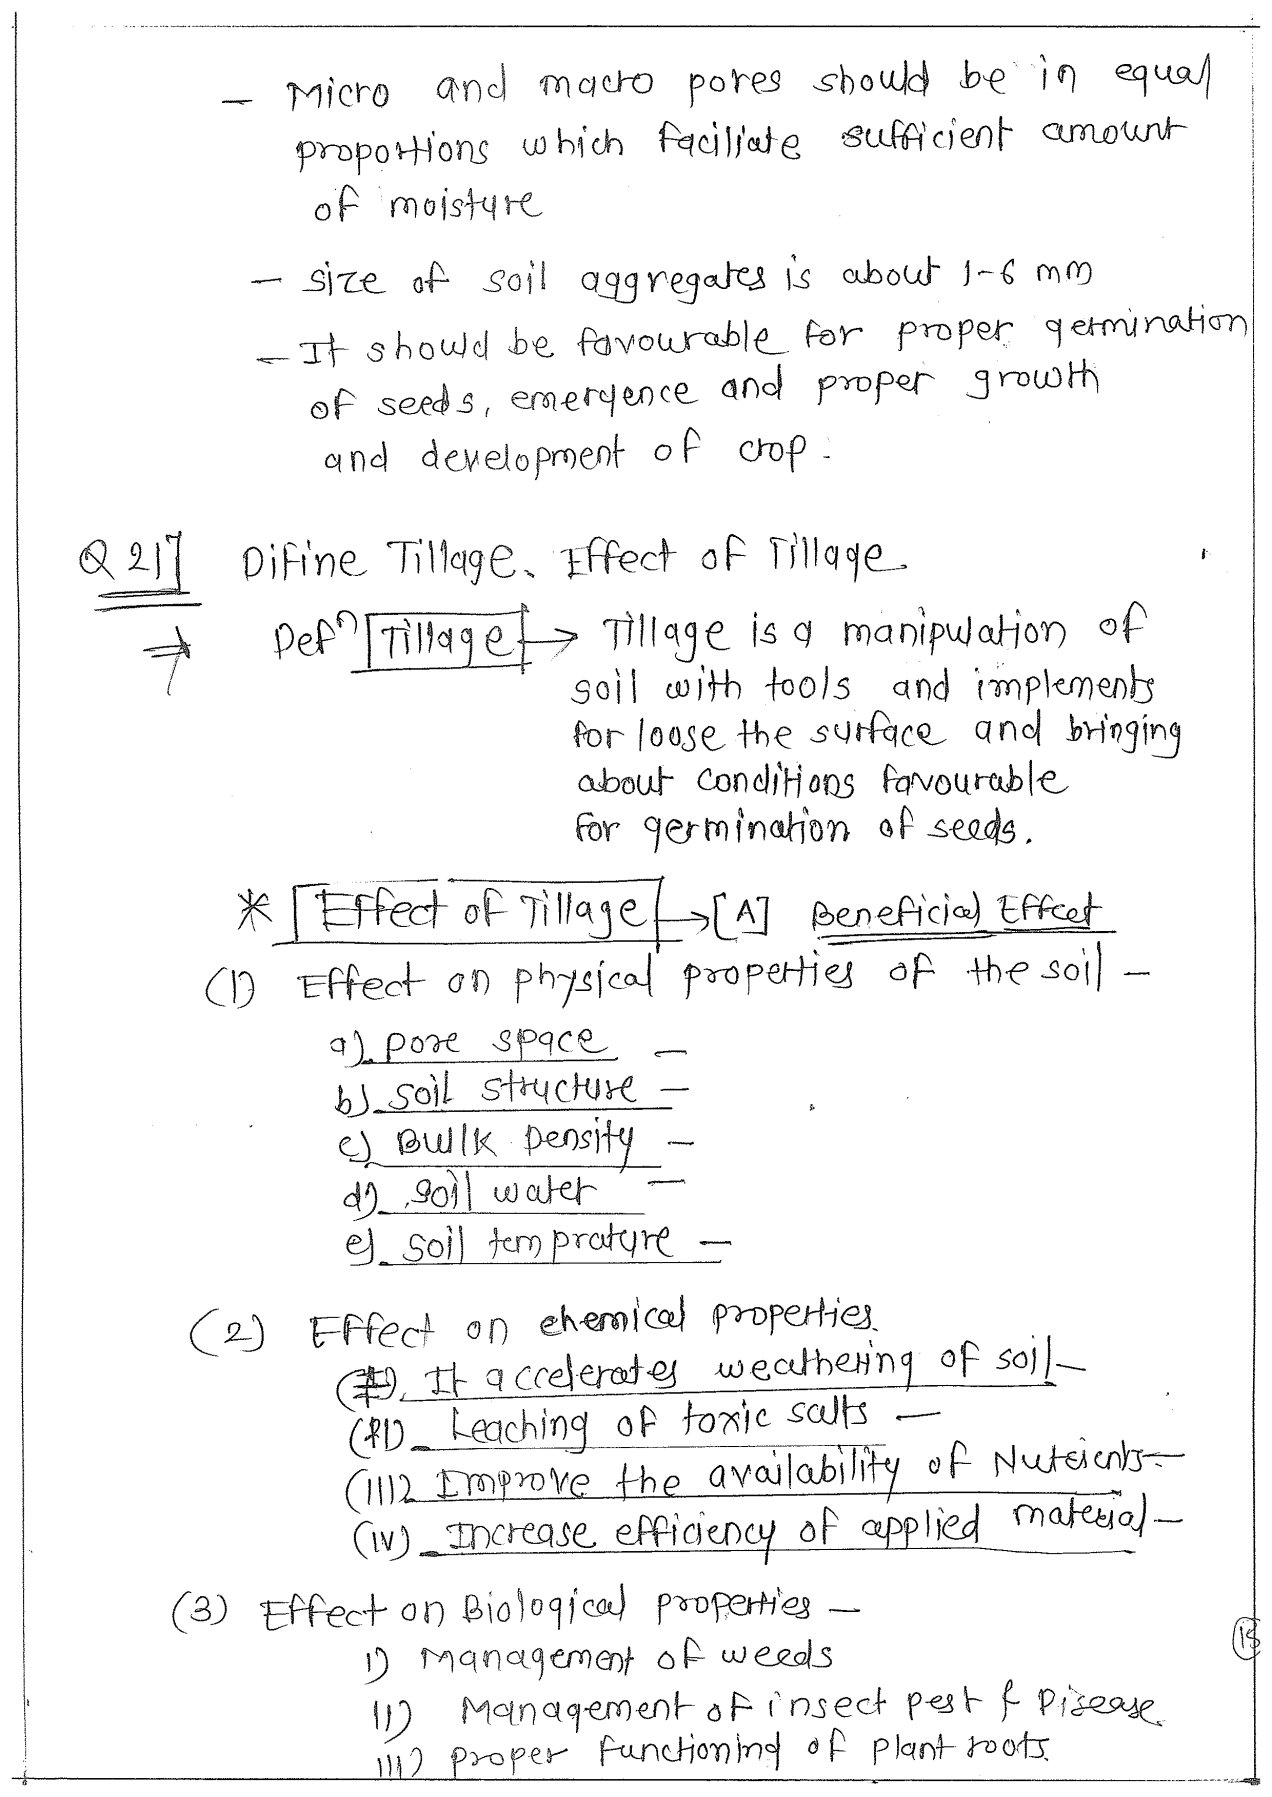 - Micro and macro pores should be in equal
proportions which faciliate sufficient amount
of moisture
- size of soil aggregates is about 1-6 mm
- It should be favourable for proper germination
of seeds, emergence and proper growth
and development of crop.
Q 21] Difine Tillage. Effect of Tillage
⇒ Defn Tillage → Tillage is a manipulation of
soil with tools and implements
for loose the surface and bringing
about conditions favourable
for germination of seeds.
* Effect of Tillage → [A] Beneficial Effcet
(1) Effect on physical properties of the soil -
a). pore space -
b). soil structure -
c). Bulk Density -
d). soil water -
e). soil temprature -
(2) Effect on chemical properties.
(I). It accelerates weathering of soil -
(II) Leaching of toxic salts -
(III) Improve the availability of Nutrients -
(iv) Increase efficiency of applied material -
(3) Effect on Biological properties -
i) Management of weeds
ii) Management of insect pest & Disease.
iii) proper functioning of plant roots.
15